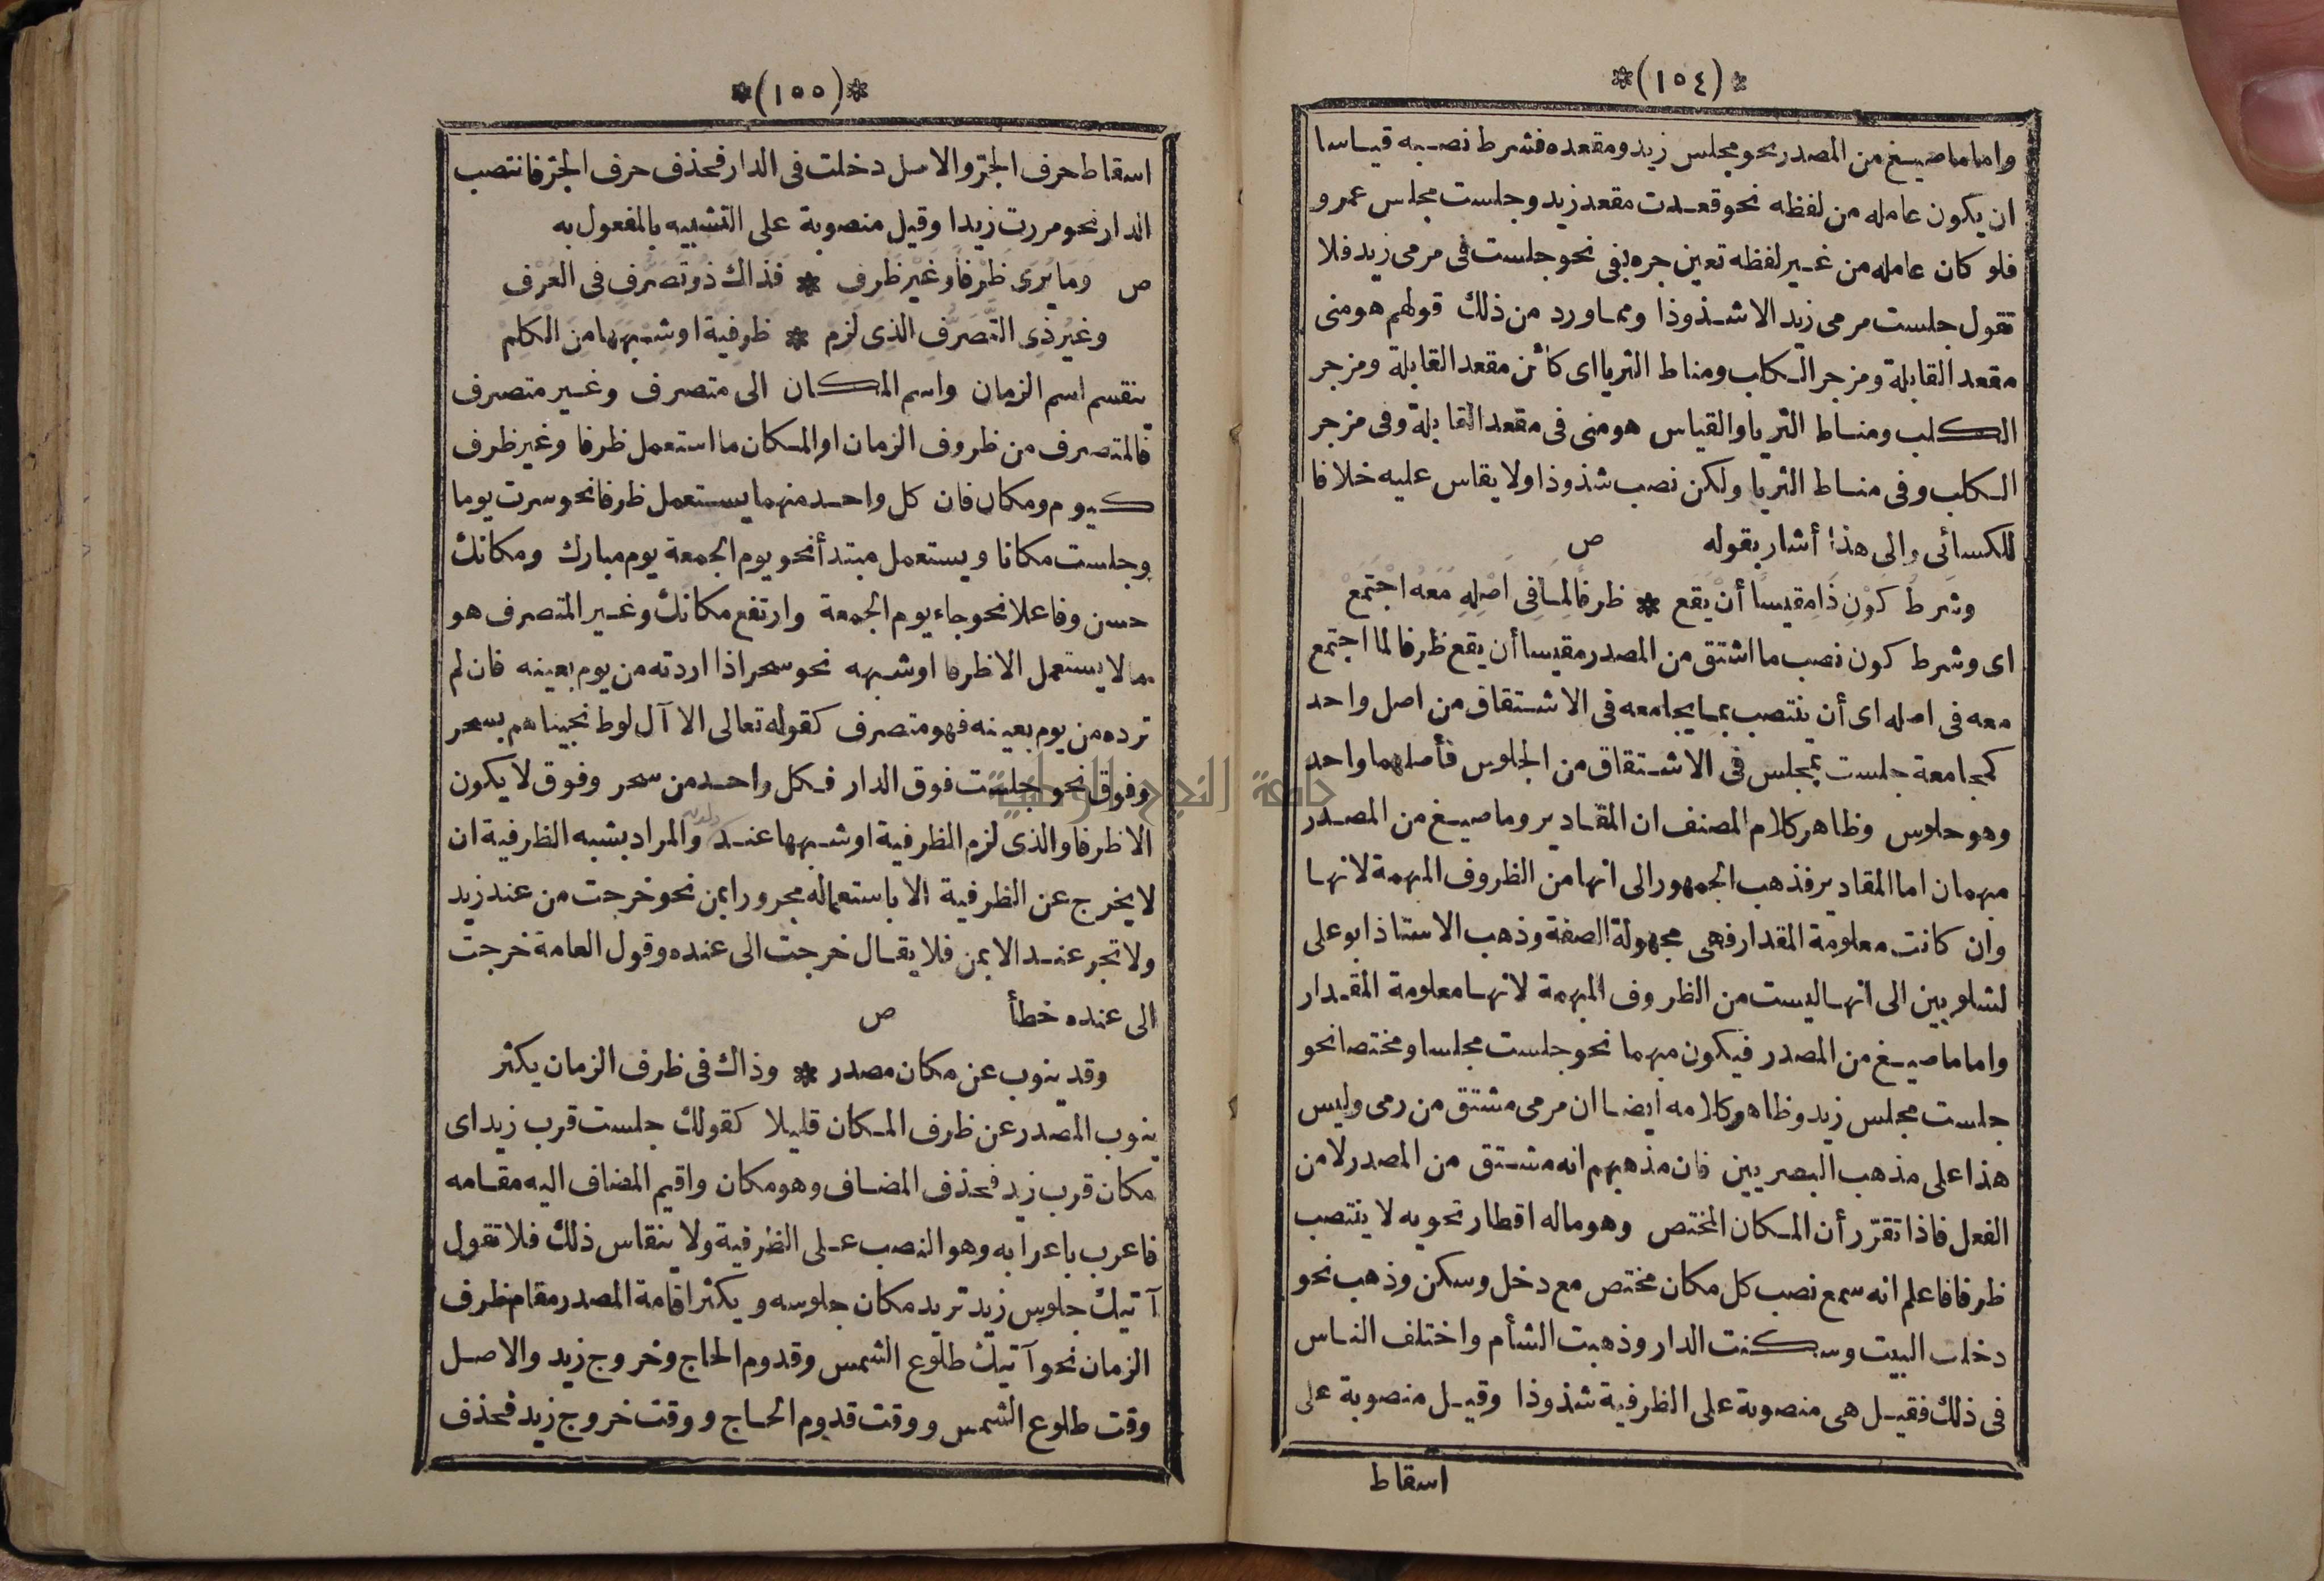 *(١٥٤)*
واما ما صيغ من المصدر نحو مجلس زيد ومقعده فشرط نصبه قياسا
ان يكون عامله من لفظه نحو قعدت مقعد زيد وجلست مجلس عمرو
فلو كان عامله من غير لفظه تعين جره بفى نحو جلست فى مرمى زيد فلا
تقول جلست مرمى زيد الا شذوذا ومما ورد من ذلك قولهم هو منى
مقعد القابلة ومزجر الكلب ومناط الثريا اى كائن مقعد القابلة ومزجر
الكلب ومناط الثريا والقياس هو منى فى مقعد القابلة وفى مزجر
الكلب وفى مناط الثريا ولكن نصب شذوذا ولا يقاس عليه خلافا
للكسائى والى هذا أشار بقوله ص
وشَرطُ كَوْنِ ذَا مَقيسًا أنْ يَقَع * ظرفًا لِمَا فِى اَصْلِهِ مَعَهُ اجْتَمَعْ
اى وشرط كون نصب ما اشتق من المصدر مقيسا أن يقع ظرفا لما اجتمع
معه فى اصله اى أن ينتصب بما يجامعه فى الاشتقاق من اصل واحد
كمجامعة جلست بمجلس فى الاشتقاق من الجلوس فأصلهما واحد
وهو جلوس وظاهر كلام المصنف ان المقادير وما صيغ من المصدر
مبهمان اما المقادير فذهب الجمهور الى انها من الظروف المبهمة لانها
وان كانت معلومة المقدار فهى مجهولة الصفة وذهب الاستاذ ابو على
لشلوبين الى انها ليست من الظروف المبهمة لانها معلومة المقدار
واما ما صيغ من المصدر فيكون مبهما نحو جلست مجلسا ومختصا نحو
جلست مجلس زيد وظاهر كلامه ايضا ان مرمى مشتق من رمى وليس
هذا على مذهب البصريين فان مذهبهم انه مشتق من المصدر لا من
الفعل فاذا تقرّر أن المكان المختص وهو ماله اقطار تحويه لا ينتصب
ظرفا فاعلم انه سمع نصب كل مكان مختص مع دخل وسكن وذهب نحو
دخلت البيت وسكنت الدار وذهبت الشأم واختلف الناس
فى ذلك فقيل هى منصوبة على الظرفية شذوذا وقيل منصوبة على
اسقاط
*(١٥٥)*
اسقاط حرف الجرّ والاصل دخلت فى الدار فحذف حرف الجرّ فانتصب
الدار نحو مررت زيدا وقيل منصوبة على التشبيه بالمفعول به
ص وَمَا يُرَى ظَرْفًا وَغَيْرَ ظَرفِ * فَذَاكَ ذُو تَصَرُّفٍ فى العُرْفِ
وغَيْرُ ذِى التَّصَرُّفِ الذِى لَزِمْ * ظَرفِيَّةً اوشِبْهَهَا مِنَ الكَلِمْ
ينقسم اسم الزمان واسم المكان الى متصرف وغير متصرف
فالمتصرف من ظروف الزمان او المكان ما استعمل ظرفا وغير ظرف
كيوم ومكان فان كل واحد منهما يستعمل ظرفا نحو سرت يوما
وجلست مكانا ويستعمل مبتدأ نحو يوم الجمعة يوم مبارك ومكانك
حسن وفاعلا نحو جاء يوم الجمعة وارتفع مكانك وغير المتصرف هو
ما لا يستعمل الا ظرفا او شبهه نحو سحر اذا اردته من يوم بعينه فان لم
ترده من يوم بعينه فهو متصرف كقوله تعالى الا آل لوط نجيناهم بسحر
وفوق نحو جلست فوق الدار فكل واحد من سحر وفوق لا يكون
الا ظرفا والذى لزم الظرفية او شبهها عند والمراد بشبه الظرفية ان
لا يخرج عن الظرفية الا باستعماله مجرورا بمن نحو خرجت من عند زيد
ولا تجر عند الا بمن فلا يقال خرجت الى عنده وقول العامة خرجت
الى عنده خطأ ص
وقد ينوب عن مكان مصدر * وذاك فى ظرف الزمان يكثر
ينوب المصدر عن ظرف المكان قليلا كقولك جلست قرب زيد اى
مكان قرب زيد فحذف المضاف وهو مكان واقيم المضاف اليه مقامه
فاعرب باعرابه وهو النصب على الظرفية ولا ينقاس ذلك فلا تقول
آتيك جلوس زيد تريد مكان جلوسه ويكثر اقامة المصدر مقام ظرف
الزمان نحو آتيك طلوع الشمس وقدوم الحاج وخروج زيد والاصل
وقت طلوع الشمس ووقت قدوم الحاج ووقت خروج زيد فحذف
جامعة النجاح الوطنية